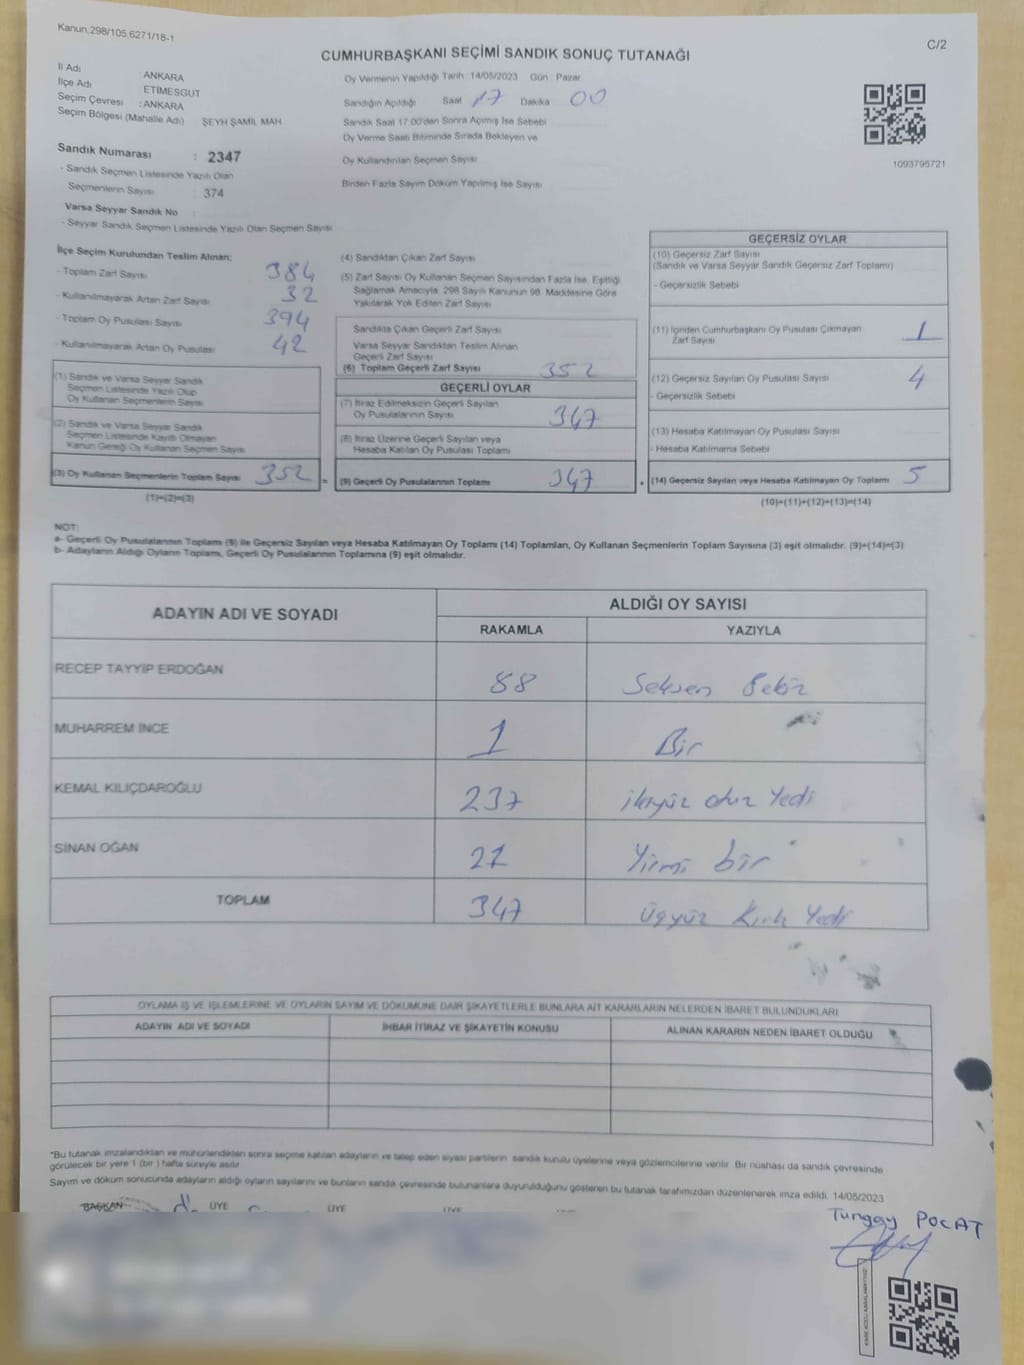 Kanun,298/105,6271/18-1
C/2
CUMHURBAŞKANI SEÇİMİ SANDIK SONUÇ TUTANAĞI
İl Adı ANKARA
İlçe Adı ETİMESGUT
Seçim Çevresi : ANKARA
Seçim Bölgesi (Mahalle Adı) ŞEYH ŞAMİL MAH.
Sandık Numarası : 2347
- Sandık Seçmen Listesinde Yazılı Olan
Seçmenlerin Sayısı : 374
Varsa Seyyar Sandık No
- Seyyar Sandık Seçmen Listesinde Yazılı Olan Seçmen Sayısı
Oy Vermenin Yapıldığı Tarih :14/05/2023 Gün : Pazar
Sandığın Açıldığı Saat 17 Dakika 00
Sandık Saat 17.00'den Sonra Açımış İse Sebebi
Oy Verme Saati Bitiminde Sırada Bekleyen ve
Oy Kullandırılan Seçmen Sayısı
Birden Fazla Sayım Döküm Yapılmış İse Sayısı
1093795721
İlçe Seçim Kurulundan Teslim Alınan;
- Toplam Zarf Sayısı 384
- Kullanılmayarak Artan Zarf Sayısı 32
- Toplam Oy Pusulası Sayısı 394
- Kullanılmayarak Artan Oy Pusulası 42
(1) Sandık ve Varsa Seyyar Sandık
Seçmen Listesinde Yazılı Olup
Oy Kullanan Seçmenlerin Sayısı
(2) Sandık ve Varsa Seyyar Sandık
Seçmen Listesinde Kayıtlı Olmayan
Kanun Gereği Oy Kullanan Seçmen Sayısı
(3) Oy Kullanan Seçmenlerin Toplam Sayısı 352 =
(1)+(2)=(3)
(4) Sandıktan Çıkan Zarf Sayısı
(5) Zarf Sayısı Oy Kullanan Seçmen Sayısından Fazla İse, Eşitliği
Sağlamak Amacıyla, 298 Sayılı Kanunun 98. Maddesine Göre
Yakılarak Yok Edilen Zarf Sayısı
Sandıkta Çıkan Geçerli Zarf Sayısı
Varsa Seyyar Sandıktan Teslim Alınan
Geçerli Zarf Sayısı
(6) Toplam Geçerli Zarf Sayısı 352
GEÇERLİ OYLAR
(7) İtiraz Edilmeksizin Geçerli Sayılan
Oy Pusulalarının Sayısı 347
(8) İtiraz Üzerine Geçerli Sayılan veya
Hesaba Katılan Oy Pusulası Toplamı
(9) Geçerli Oy Pusulalarının Toplamı 347 +
GEÇERSİZ OYLAR
(10) Geçersiz Zarf Sayısı
(Sandık ve Varsa Seyyar Sandık Geçersiz Zarf Toplamı)
- Geçersizlik Sebebi
(11) İçinden Cumhurbaşkanı Oy Pusulası Çıkmayan
Zarf Sayısı 1
(12) Geçersiz Sayılan Oy Pusulası Sayısı 4
- Geçersizlik Sebebi
(13) Hesaba Katılmayan Oy Pusulası Sayısı
- Hesaba Katılmama Sebebi
(14) Geçersiz Sayılan veya Hesaba Katılmayan Oy Toplamı 5
(10)+(11)+(12)+(13)=(14)
NOT:
a- Geçerli Oy Pusulalarının Toplamı (9) ile Geçersiz Sayılan veya Hesaba Katılmayan Oy Toplamı (14) Toplamları, Oy Kullanan Seçmenlerin Toplam Sayısına (3) eşit olmalıdır. (9)+(14)=(3)
b- Adayların Aldığı Oyların Toplamı, Geçerli Oy Pusulalarının Toplamına (9) eşit olmalıdır.
ADAYIN ADI VE SOYADI ALDIĞI OY SAYISI
RAKAMLA YAZIYLA
RECEP TAYYİP ERDOĞAN 88 Seksen Sekiz
MUHARREM İNCE 1 Bir
KEMAL KILIÇDAROĞLU 237 ikiyüz otuz Yedi
SİNAN OĞAN 21 Yirmi bir
TOPLAM 347 üçyüz Kırk Yedi
OYLAMA İŞ VE İŞLEMLERİNE VE OYLARIN SAYIM VE DÖKÜMÜNE DAİR ŞİKAYETLERLE BUNLARA AİT KARARLARIN NELERDEN İBARET BULUNDUKLARI
ADAYIN ADI VE SOYADI İHBAR İTİRAZ VE ŞİKAYETİN KONUSU ALINAN KARARIN NEDEN İBARET OLDUĞU
*Bu tutanak imzalandıktan ve mühürlendikten sonra seçime katılan adayların ve talep eden siyasi partilerin sandık kurulu üyelerine veya gözlemcilerine verilir. Bir nüshası da sandık çevresinde
görülecek bir yere 1 (bir) hafta süreyle asılır
Sayım ve döküm sonucunda adayların aldığı oyların sayılarını ve bunların sandık çevresinde bulunanlara duyurulduğunu gösteren bu tutanak tarafımızdan düzenlenerek imza edildi. 14/05/2023
BAŞKAN ÜYE ÜYE ÜYE
Tungay POCAT